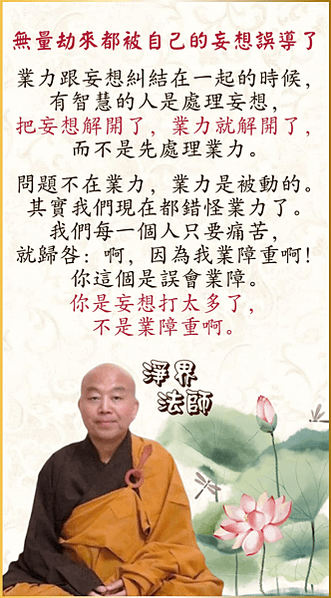 無量劫來都被自己的妄想誤導了
業力跟妄想糾結在一起的時候，
有智慧的人是處理妄想，
把妄想解開了，業力就解開了，
而不是先處理業力。
問題不在業力，業力是被動的。
其實我們現在都錯怪業力了。
我們每一個人只要痛苦，
就歸咎：啊，因為我業障重啊！
你這個是誤會業障。
你是妄想打太多了，
不是業障重啊。
淨界
法師